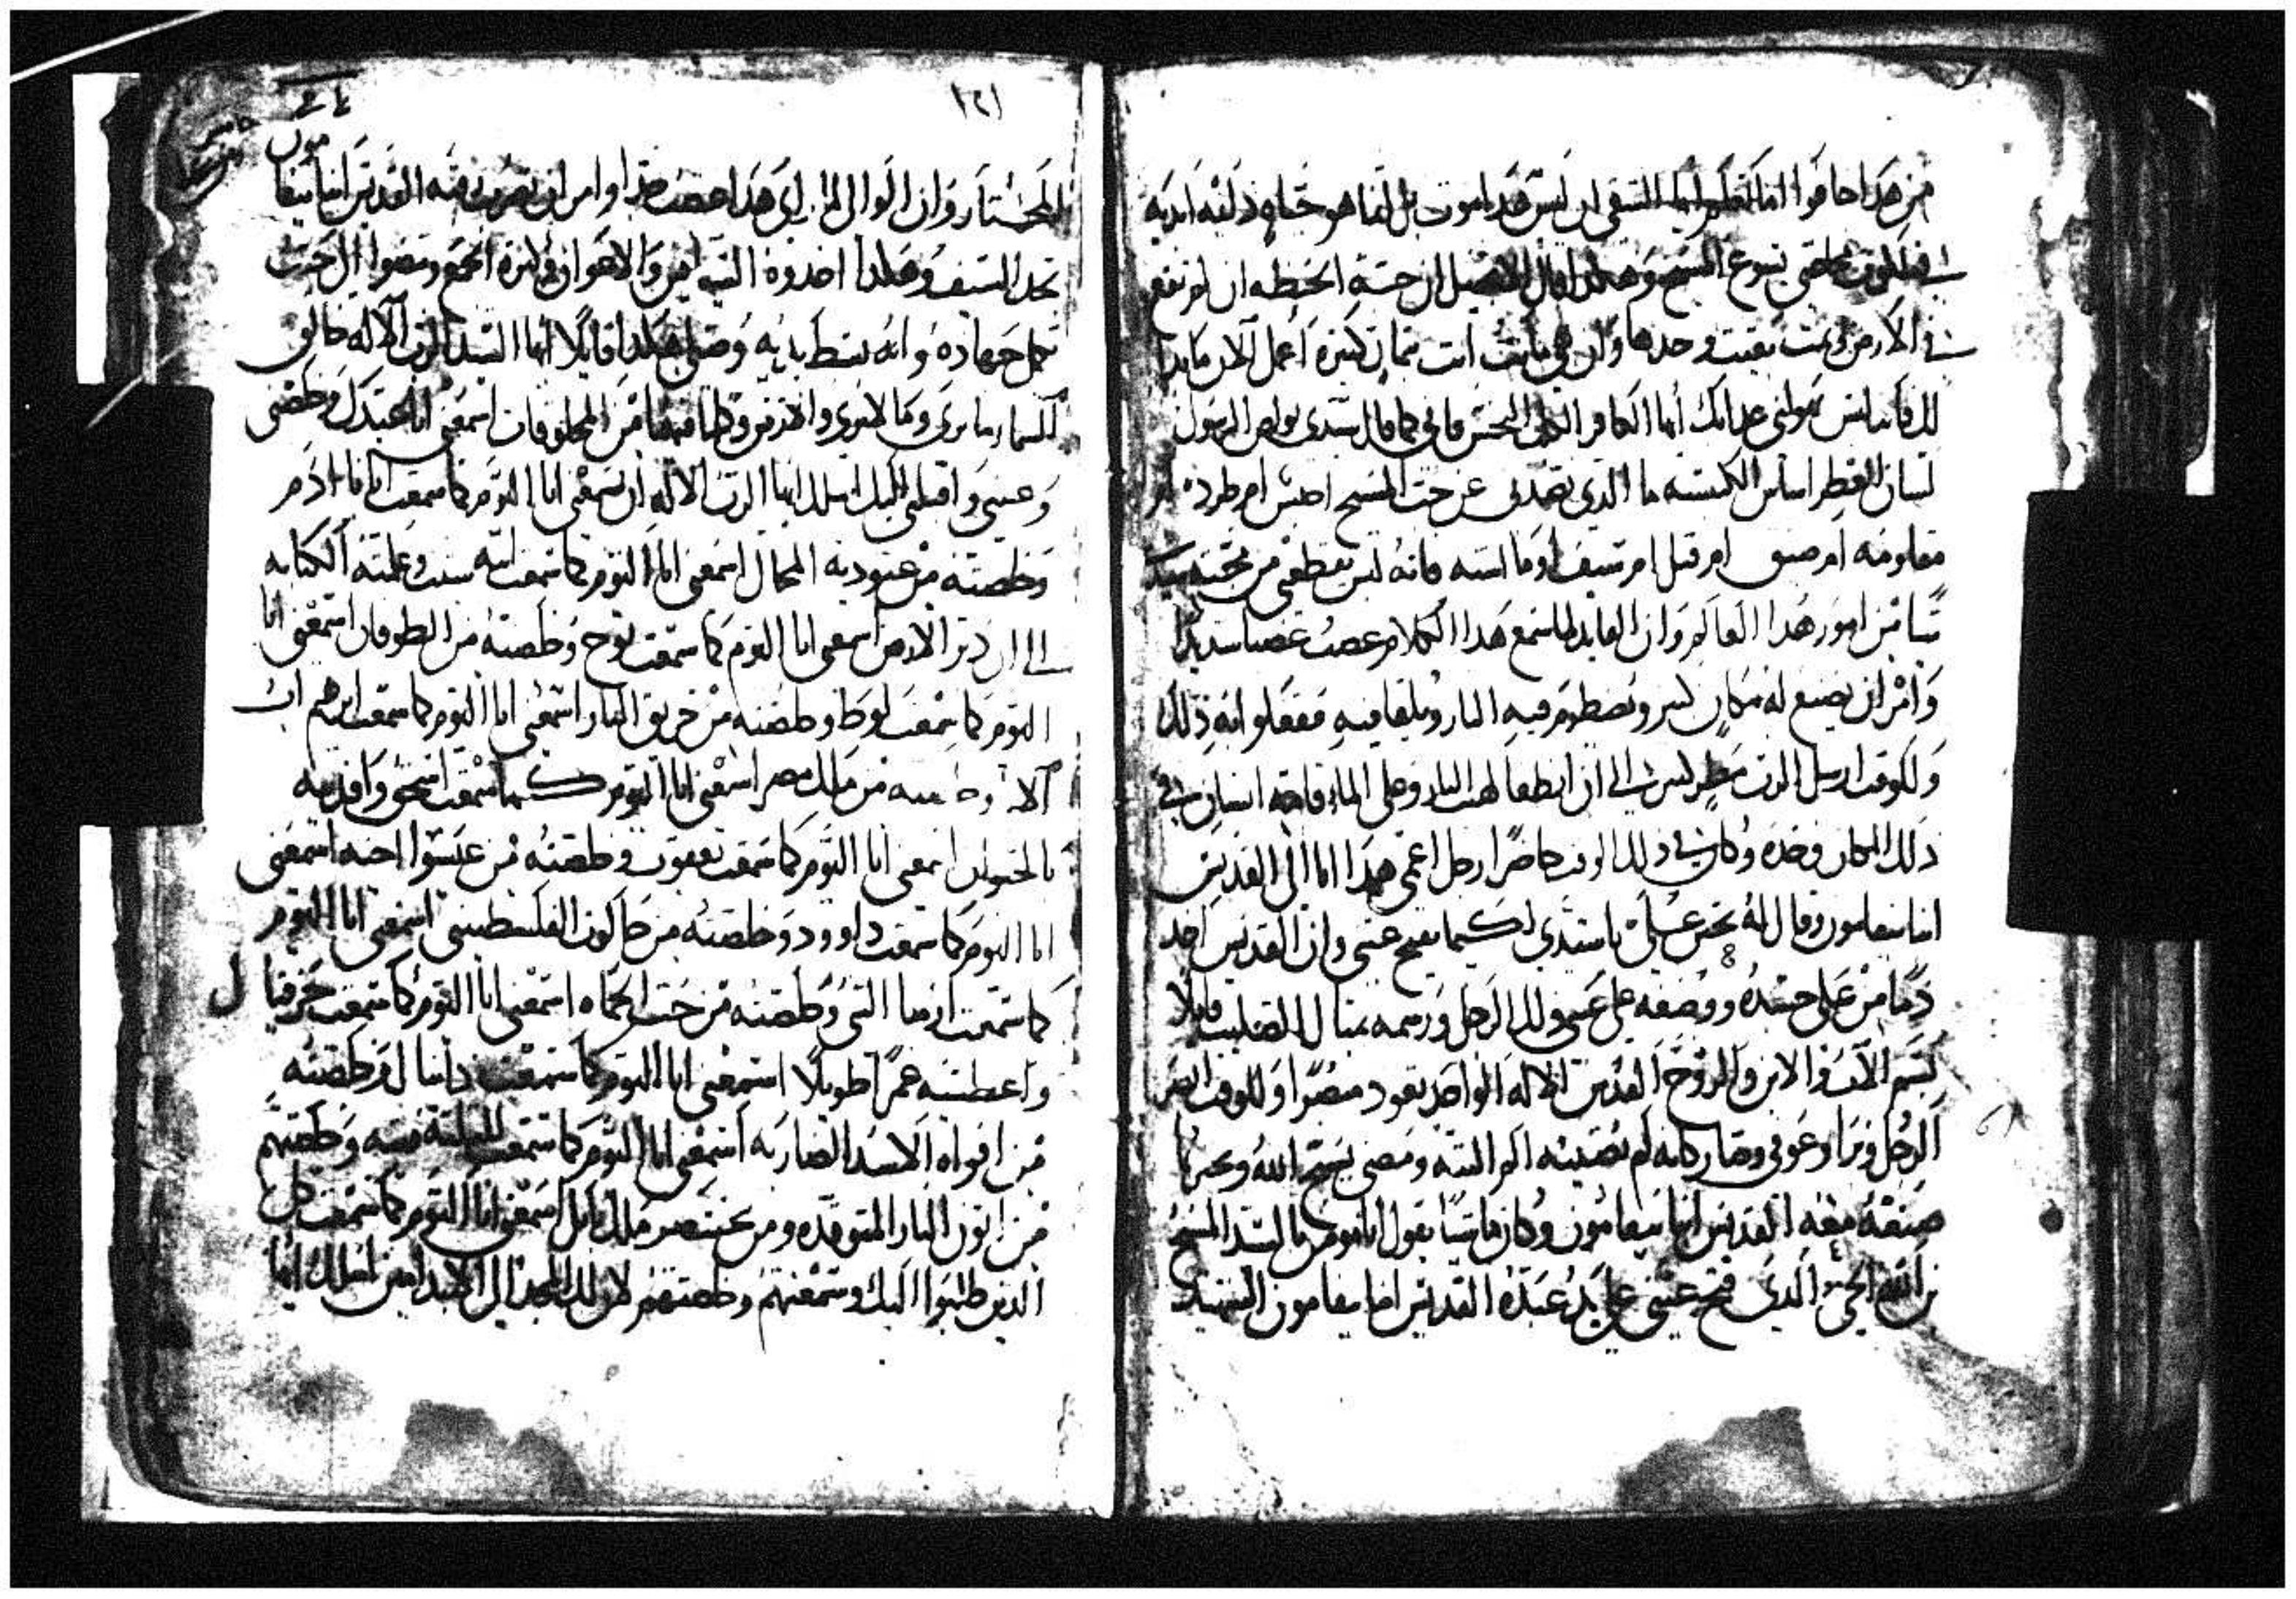 من هدا خافوا اما تعلم ايها الشقي ان ليس هدا موت بل انما هو حياه دايمه ابديه
يسوع المسيح وهكدا قال الانجيل ان حبة الحنطه ان لم تقع
في الارض وتمت بقيت وحدها وان هي ماتت اتت بثمار كثيره اعمل الان ما بدا
لك فانا ليس يهولني عدابك ايها الكافر الكلب النجس فاني كما قال سيدي بولص الرسول
لسان العطر اساس الكنيسه ما الدي يصدني عن حب المسيح احبس ام طرد ام
مقاومه ام ضيق ام قتل ام سيف او ما اشبه فانه ليس يقطعني من محبته
شيا من امور هدا العالم وان العايد لما سمع هدا الكلام غضب غضبا شديدا
وامر ان يصنع له مكان كبير وتضطرم فيه النار ويلقا فيه ففعلوا به دلك
وللوقت ارسل الرب مطر ليس الي ان انطفا لهب النار وغلي الماء انسان في
دلك المكان وحده وكان في دلك الوقت حاضرا رجل اعمي هدا اتا الي القديس
انبا بيفامون وقال له تحنن علي يا سيدي لكيما تفتح عيني وان القديس اخد
دما من علي جسده ووضعه علي عيني دلك الرجل ورسمه بمثال الصليب قايلا
بسم الاب والابن والروح القدس الاله الواحد تعود مبصرا وللوقت ابصر
الرجل وبرا وعوفي وصار كانه لم تصيبه الم البته ومضي يسبح الله ويخبر بما
صنعه معه القديس انبا بيفامون وكان ماشيا يقول انا مومن بالسيد المسيح
بن الله الحي الدي فتح عيني علي يد عبده القديس انبا بيفامون الشهيد
١٢١
المختار وان الوالي لما راي هدا غضب جدا وامر ان تضرب رقبه القديس انبا بيفا
مون
بحد السيف وهكدا اخدوه الشياطين والاعوان في كثرة الجمع ومضوا الي حيث
يكمل جهاده وانه بسط يديه وصلي هكدا قايلا ايها السيد الرب الاله خالق
السما ما يري وما لا يري والارض وكلما فيها من المخلوقات اسمعني انا عبدك وخلصني
وعيني واقبلني اليك اسلك ايها الرب الاله ان تسمعني انا اليوم كما سمعت ابانا ادم
وخلصته من عبوديه المحال اسمعني انا اليوم كما سمعت ابنه سيت وعلمته الكتابه
الي ان دبر الارض اسمعني انا اليوم كما سمعت نوح وخلصته من الطوفان اسمعني انا
اليوم كما سمعت لوط وخلصته من حريق النار اسمعني انا اليوم كما سمعت ابرهيم اب
الا من ملك مصر اسمعني انا اليوم كما سمعت اسحق وافديته
بالحيوان اسمعني انا اليوم كما سمعت يعقوب وخلصته من عيسوا اخيه اسمعني
انا اليوم كما سمعت داوود وخلصته من جالوت الفلسطيني اسمعني انا اليوم
كما سمعت ارميا النبي وخلصته من جب الحماه اسمعني انا اليوم كما سمعت حزقيال
واعطيته عمرا طويلا اسمعني انا اليوم كما سمعت دانيال وخلصته
من افواه الاسد الضاريه اسمعني انا اليوم كما سمعت الثلتة فتيه وخلصتهم
من اتون النار المتوقده ومن بختنصر ملك بابل اسمعني انا اليوم كما سمعت كل
الدين طلبوا اليك وسمعتهم وخلصتهم لان لك المجد الي الابد امين اسلك ايها